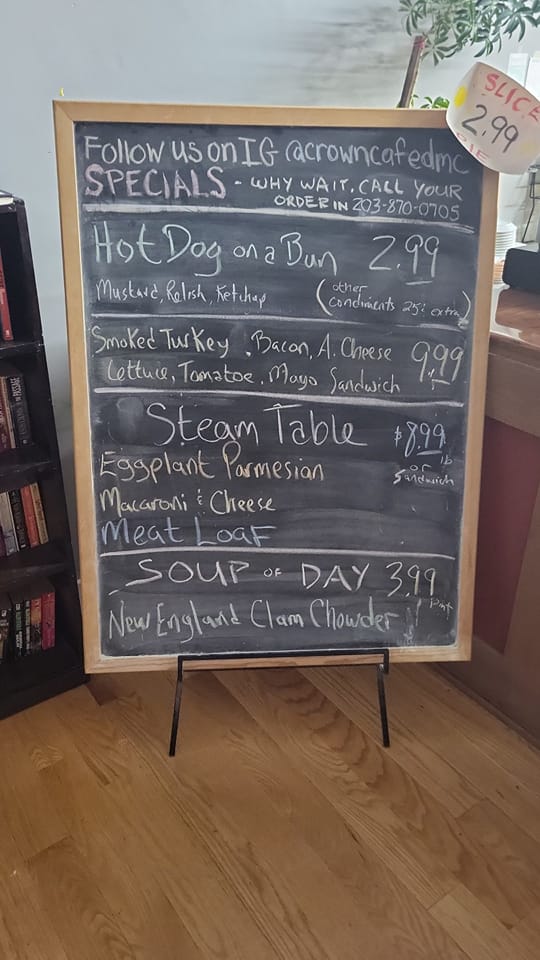 Follow us on IG @acrowncafedmc
SPECIALS - WHY WAIT. CALL YOUR
ORDER IN 203-870-0705
Hot Dog on a Bun 2.99
Mustard, Relish, Ketchup (other condiments 25¢ extra)
Smoked Turkey, Bacon, A. Cheese 9.99
Lettuce, Tomatoe, Mayo Sandwich
Steam Table $8.99 lb
Eggplant Parmesian or Sandwich
Macaroni & Cheese
Meat Loaf
SOUP OF DAY 3.99 Pint
New England Clam Chowder
SLICE
2.99
PIE